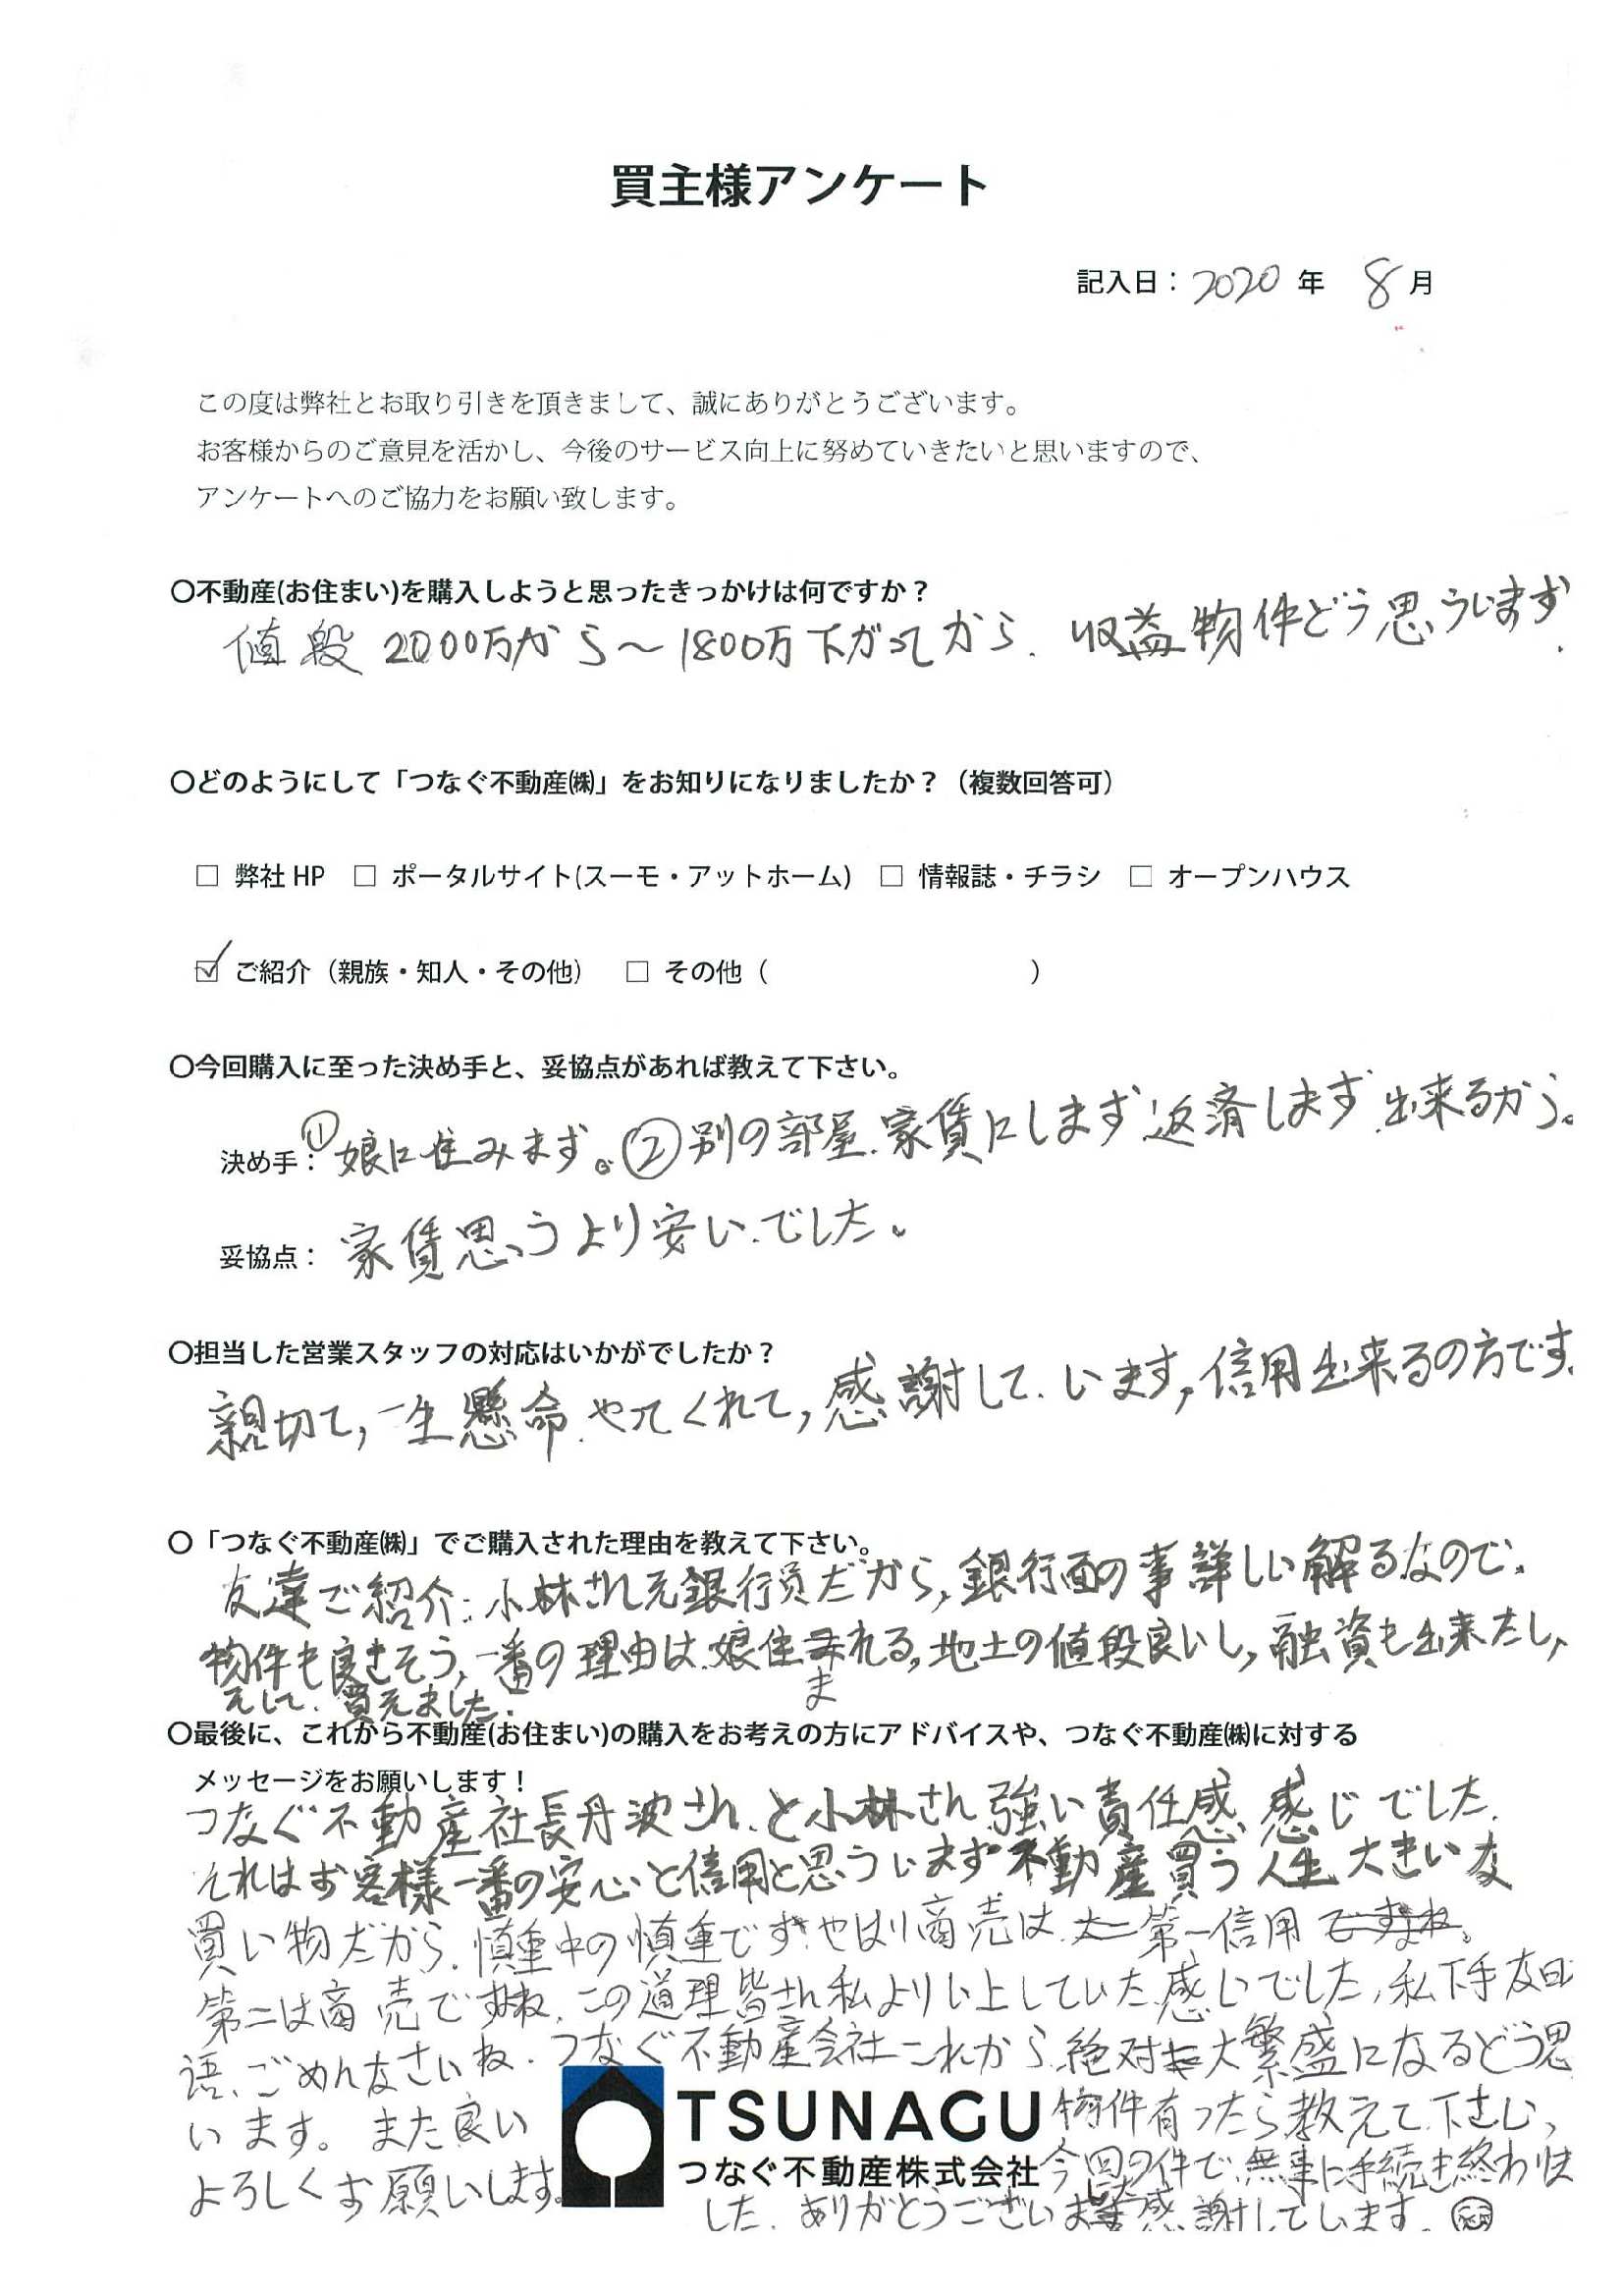 買主様アンケート
記入日：2020 年 8 月
この度は弊社とお取り引きを頂きまして、誠にありがとうございます。
お客様からのご意見を活かし、今後のサービス向上に努めていきたいと思いますので、
アンケートへのご協力をお願い致します。
〇不動産(お住まい)を購入しようと思ったきっかけは何ですか？
値段 2000万から～1800万下がってから. 収益物件どう思うします.
〇どのようにして「つなぐ不動産㈱」をお知りになりましたか？（複数回答可）
□ 弊社 HP □ ポータルサイト(スーモ・アットホーム) □ 情報誌・チラシ □ オープンハウス
☑ ご紹介（親族・知人・その他） □ その他（ ）
〇今回購入に至った決め手と、妥協点があれば教えて下さい。
決め手：①娘に住みます。②別の部屋.家賃にします.返済します.出来るから。
妥協点： 家賃思うより安い.でした。
〇担当した営業スタッフの対応はいかがでしたか？
親切て, 一生懸命.やってくれて, 感謝して.います, 信用出来るの方です.
〇「つなぐ不動産㈱」でご購入された理由を教えて下さい。
友達ご紹介: 小林さん元銀行員だから, 銀行面の事詳しい解るなので.
物件も良さそう, 一番の理由は.娘住まれる, 地土の値段良いし, 融資も出来たし,
そして. 買えました.
〇最後に、これから不動産(お住まい)の購入をお考えの方にアドバイスや、つなぐ不動産㈱に対する
メッセージをお願いします！
つなぐ不動産社長丹波さん.と小林さん強い責任感 感じでした.
それはお客様一番の安心と信用と思ういます 不動産買う人生.大きいな
買い物だから. 慎重中の慎重です.やはり商売は 第一信用ですよね。
第二は商売ですよね. この道理皆さん私よりい上していた.感じでした, 私下手な日
語、ごめんなさいね. つなぐ不動産会社これから.絶対大繁盛になるどう思
います。また良い TSUNAGU 物件有ったら教えて.下さい,
よろしくお願いします。つなぐ不動産株式会社 今回の件で.無事に手続き終わ
した. ありがとうございました 感謝しています.